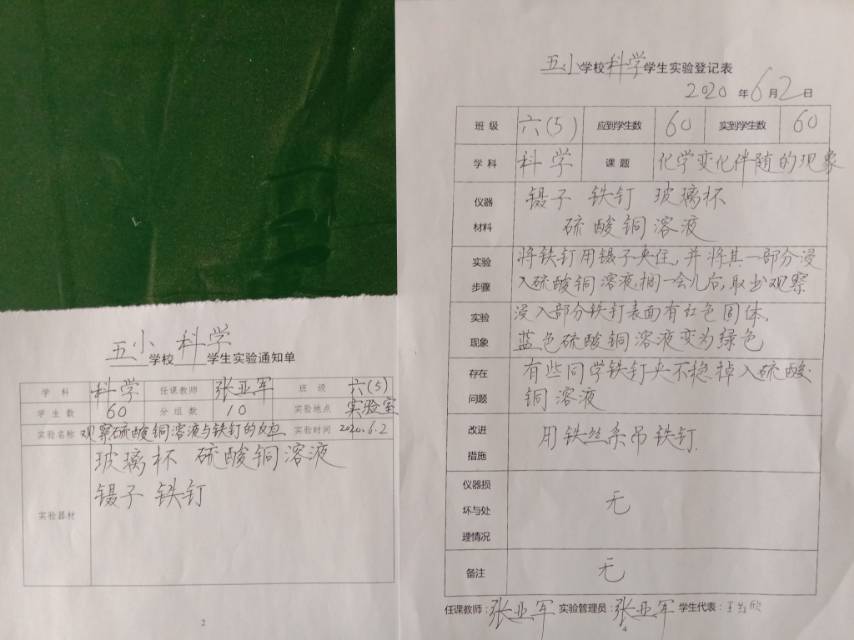 五小学校科学学生实验通知单
学科 科学 任课教师 张亚军 班级 六(5)
学生数 60 分组数 10 实验地点 实验室
实验名称 观察硫酸铜溶液与铁钉的反应 实验时间 2020.6.2
实验器材 玻璃杯 硫酸铜溶液
镊子 铁钉
2
五小学校科学学生实验登记表
2020年6月2日
班级 六(5) 应到学生数 60 实到学生数 60
学科 科学 课题 化学变化伴随的现象
仪器材料 镊子 铁钉 玻璃杯
硫酸铜溶液
实验步骤 将铁钉用镊子夹住,并将其一部分浸
入硫酸铜溶液,稍一会儿后,取出观察
实验现象 浸入部分铁钉表面有红色固体,
蓝色硫酸铜溶液变为绿色
存在问题 有些同学铁钉夹不稳,掉入硫酸
铜溶液
改进措施 用铁丝系吊铁钉
仪器损坏与处理情况 无
备注 无
任课教师:张亚军 实验管理员:张亚军 学生代表:
4